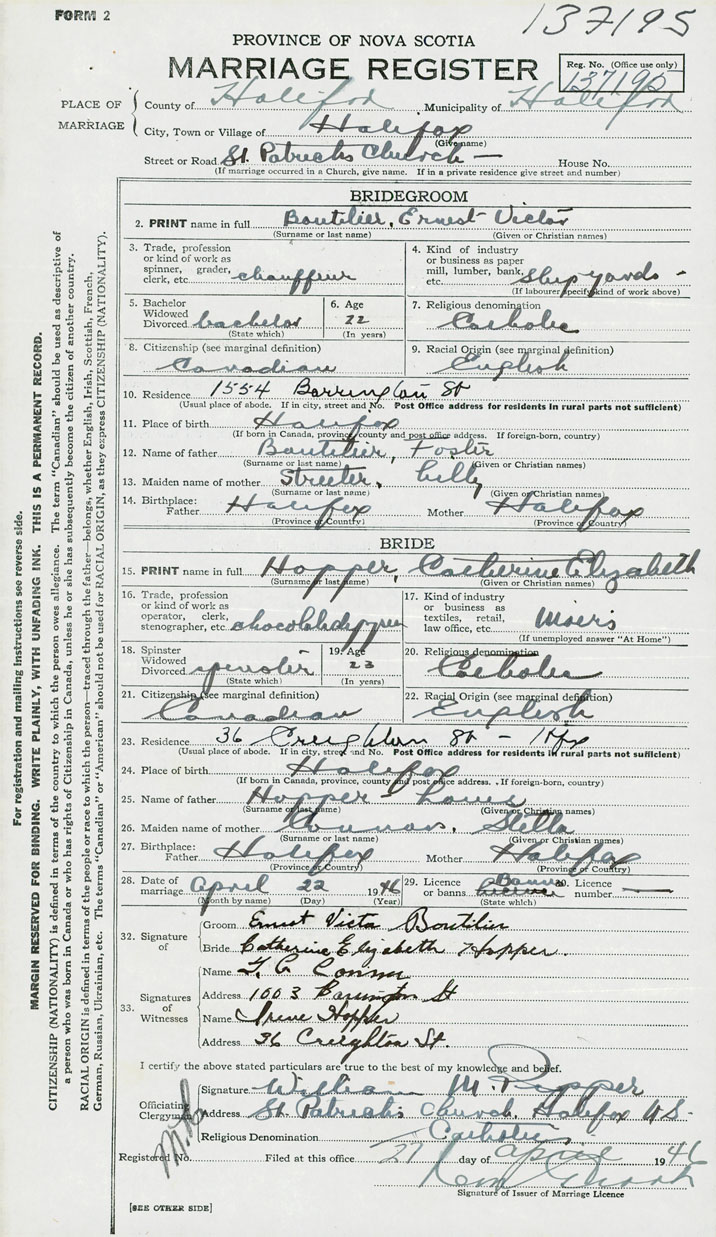 FORM 2
137195
PROVINCE OF NOVA SCOTIA
MARRIAGE REGISTER
Reg. No. (Office use only)
137195
PLACE OF MARRIAGE
County of Halifax Municipality of Halifax
City, Town or Village of Halifax
(Give name)
Street or Road St. Patricks Church — House No.
(If marriage occurred in a Church, give name. If in a private residence give street and number)
BRIDEGROOM
2. PRINT name in full Boutilier, Ernest Victor
(Surname or last name) (Given or Christian names)
3. Trade, profession or kind of work as spinner, grader, clerk, etc. chauffeur
4. Kind of industry or business as paper mill, lumber, bank, etc. shipyards -
(If labourer specify kind of work above)
5. Bachelor Widowed Divorced bachelor
(State which)
6. Age 22
(In years)
7. Religious denomination
Catholic
8. Citizenship (see marginal definition)
Canadian
9. Racial Origin (see marginal definition)
English
10. Residence 1554 Barrington St
(Usual place of abode. If in city, street and No. Post Office address for residents in rural parts not sufficient)
11. Place of birth Halifax
(If born in Canada, province, county and post office address. If foreign-born, country)
12. Name of father Boutilier, Foster
(Surname or last name) (Given or Christian names)
13. Maiden name of mother Streeter, Lilly
(Surname or last name) (Given or Christian names)
14. Birthplace: Father Halifax Mother Halifax
(Province or Country) (Province or Country)
BRIDE
15. PRINT name in full Hopper, Catherine Elizabeth
(Surname or last name) (Given or Christian names)
16. Trade, profession or kind of work as operator, clerk, stenographer, etc. chocolate dipper
17. Kind of industry or business as textiles, retail, law office, etc. Moirs
(If unemployed answer "At Home")
18. Spinster Widowed Divorced spinster
(State which)
19. Age 23
(In years)
20. Religious denomination
Catholic
21. Citizenship (see marginal definition)
Canadian
22. Racial Origin (see marginal definition)
English
23. Residence 36 Creighton St - Hfx
(Usual place of abode. If in city, street and No. Post Office address for residents in rural parts not sufficient)
24. Place of birth Halifax
(If born in Canada, province, county and post office address. If foreign-born, country)
25. Name of father Hopper - Louis
(Surname or last name) (Given or Christian names)
26. Maiden name of mother Stella
(Surname or last name) (Given or Christian names)
27. Birthplace: Father Halifax Mother Halifax
(Province or Country) (Province or Country)
28. Date of marriage April 22 1946
(Month by name) (Day) (Year)
29. Licence or banns Banns
(State which)
30. Licence number —
32. Signature of
Groom Ernest Victor Boutilier
Bride Catherine Elizabeth Hopper.
33. Signatures of Witnesses
Name
Address 1003 Barrington St
Name Irene Hopper
Address 36 Creighton St.
I certify the above stated particulars are true to the best of my knowledge and belief.
Officiating Clergyman
Signature William M.
Address St. Patricks Church, Halifax N.S.
Religious Denomination Catholic
Registered No. Filed at this office 27 day of April 1946
Signature of Issuer of Marriage Licence
[SEE OTHER SIDE]
For registration and mailing instructions see reverse side.
MARGIN RESERVED FOR BINDING. WRITE PLAINLY, WITH UNFADING INK. THIS IS A PERMANENT RECORD.
CITIZENSHIP (NATIONALITY) is defined in terms of the country to which the person owes allegiance. The term "Canadian" should be used as descriptive of
a person who was born in Canada or who has rights of Citizenship in Canada, unless he or she has subsequently become the citizen of another country.
RACIAL ORIGIN is defined in terms of the people or race to which the person—traced through the father—belongs, whether English, Irish, Scottish, French,
German, Russian, Ukrainian, etc. The terms "Canadian" or "American" should not be used for RACIAL ORIGIN, as they express CITIZENSHIP (NATIONALITY).